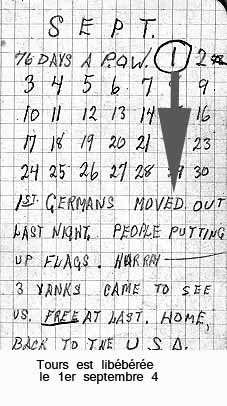 SEPT.
76 DAYS A P.O.W. 1 2
3 4 5 6 7 9
10 11 12 13 14 16
17 18 19 20 21 23
24 25 26 27 28 30
1ST. GERMANS MOVED OUT
LAST NIGHT. PEOPLE PUTTING
UP FLAGS. HARRY —
3 YANKS CAME TO SEE
US. FREE AT LAST. HOME,
BACK TO THE U.S.A.
Tours est libébérée
le 1er septembre 4